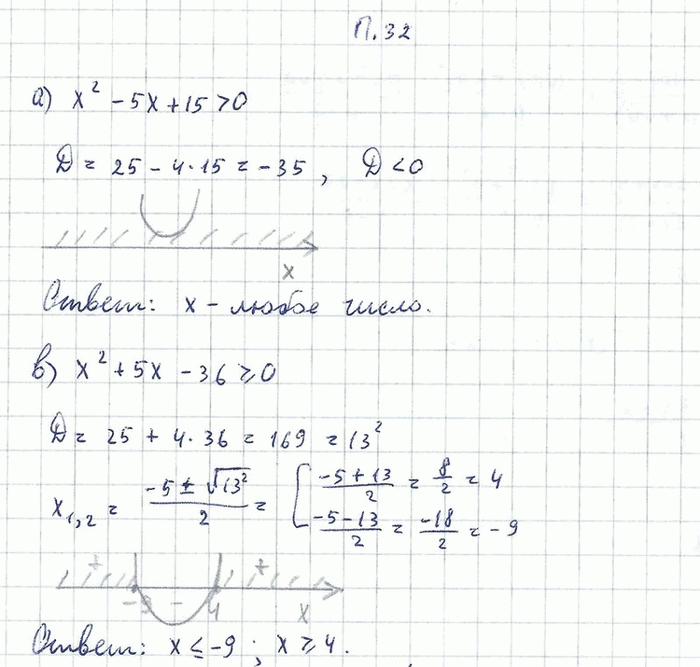 П.32
а) x² - 5x + 15 > 0
D = 25 - 4·15 = -35, D < 0
x
Ответ: x - любое число.
в) x² + 5x - 36 ≥ 0
D = 25 + 4·36 = 169 = 13²
x₁,₂ = (-5 ± √13²)/2 = [ (-5+13)/2 = 8/2 = 4
(-5-13)/2 = -18/2 = -9
+ +
-9 - 4 x
Ответ: x ≤ -9; x ≥ 4.